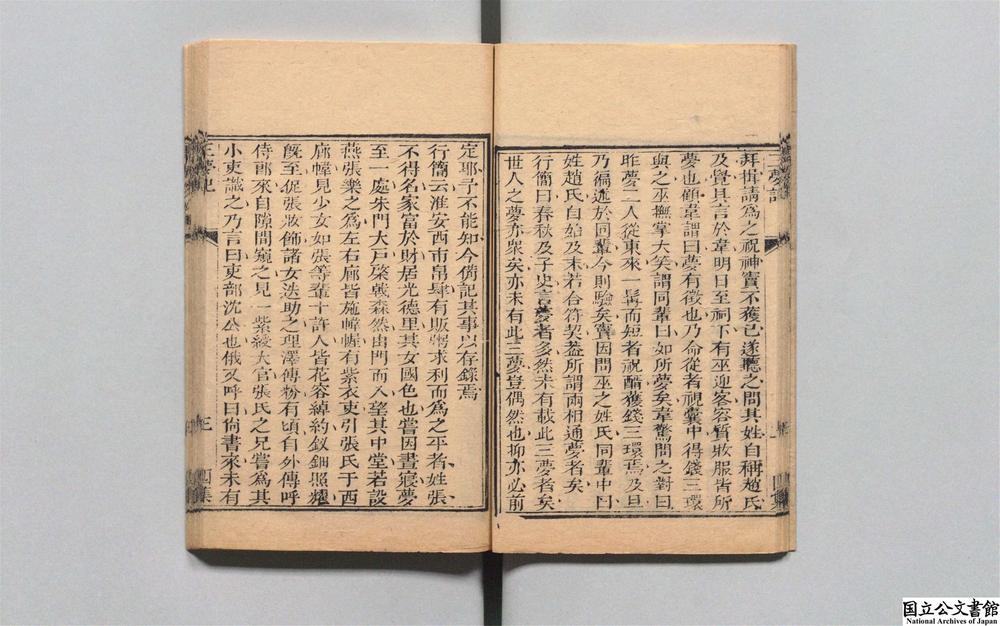 三夢記
拜揖請爲之祝神竇不獲已遂聽之問其姓自稱趙氏
及覺具言於韋明日至祠下有巫迎客容質妝服皆所
夢也顧韋謂曰夢有徵也乃命從者視囊中得錢三環
與之巫撫掌大笑謂同輩曰如所夢矣韋驚問之對曰
昨夢二人從東來一髯而短者祝醑獲錢三環焉及旦
乃徧述於同輩今則驗矣竇因問巫之姓氏同輩中曰
姓趙氏自始及末若合符契葢所謂兩相通夢者矣
行簡曰春秋及子史言夢者多然未有載此三夢者矣
世人之夢亦衆矣亦未有此三夢豈偶然也抑亦必前
四集
定耶予不能知今備記其事以存錄焉
行簡云淮安西市帛肆有販粥求利而爲之平者姓張
不得名家富於財居光德里其女國色也嘗因晝寢夢
至一處朱門大戸棨戟森然由門而入望其中堂若設
燕張樂之爲左右廊皆施幃幄有紫衣吏引張氏于西
廊幃見少女如張等輩十許人皆花容綽約釵鈿照耀
旣至促張妝飾諸女迭助之理澤傅粉有頃自外傳呼
侍郎來自隙間窺之見一紫綬大官張氏之兄嘗爲其
小吏識之乃言曰吏部沈公也俄又呼曰尙書來未有
三夢記
三
四集
国立公文書館
National Archives of Japan